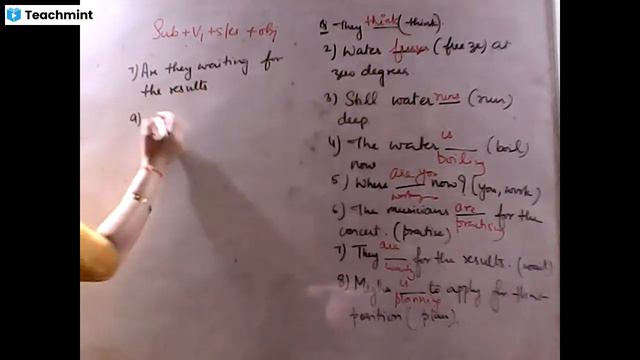 Teachmint
Sub + V1 + s/es + obj
7) Are they waiting for
the results
9)
Q They think (think).
2) Water freezes (freeze) at
zero degrees.
3) Still water runs (run)
deep
4) The water is boiling (boil)
now
5) Where are you working now? (you, work)
6) The musicians are practising for the
concert. (practise)
7) They are waiting for the results. (wait)
8) is planning to apply for
position (plan).